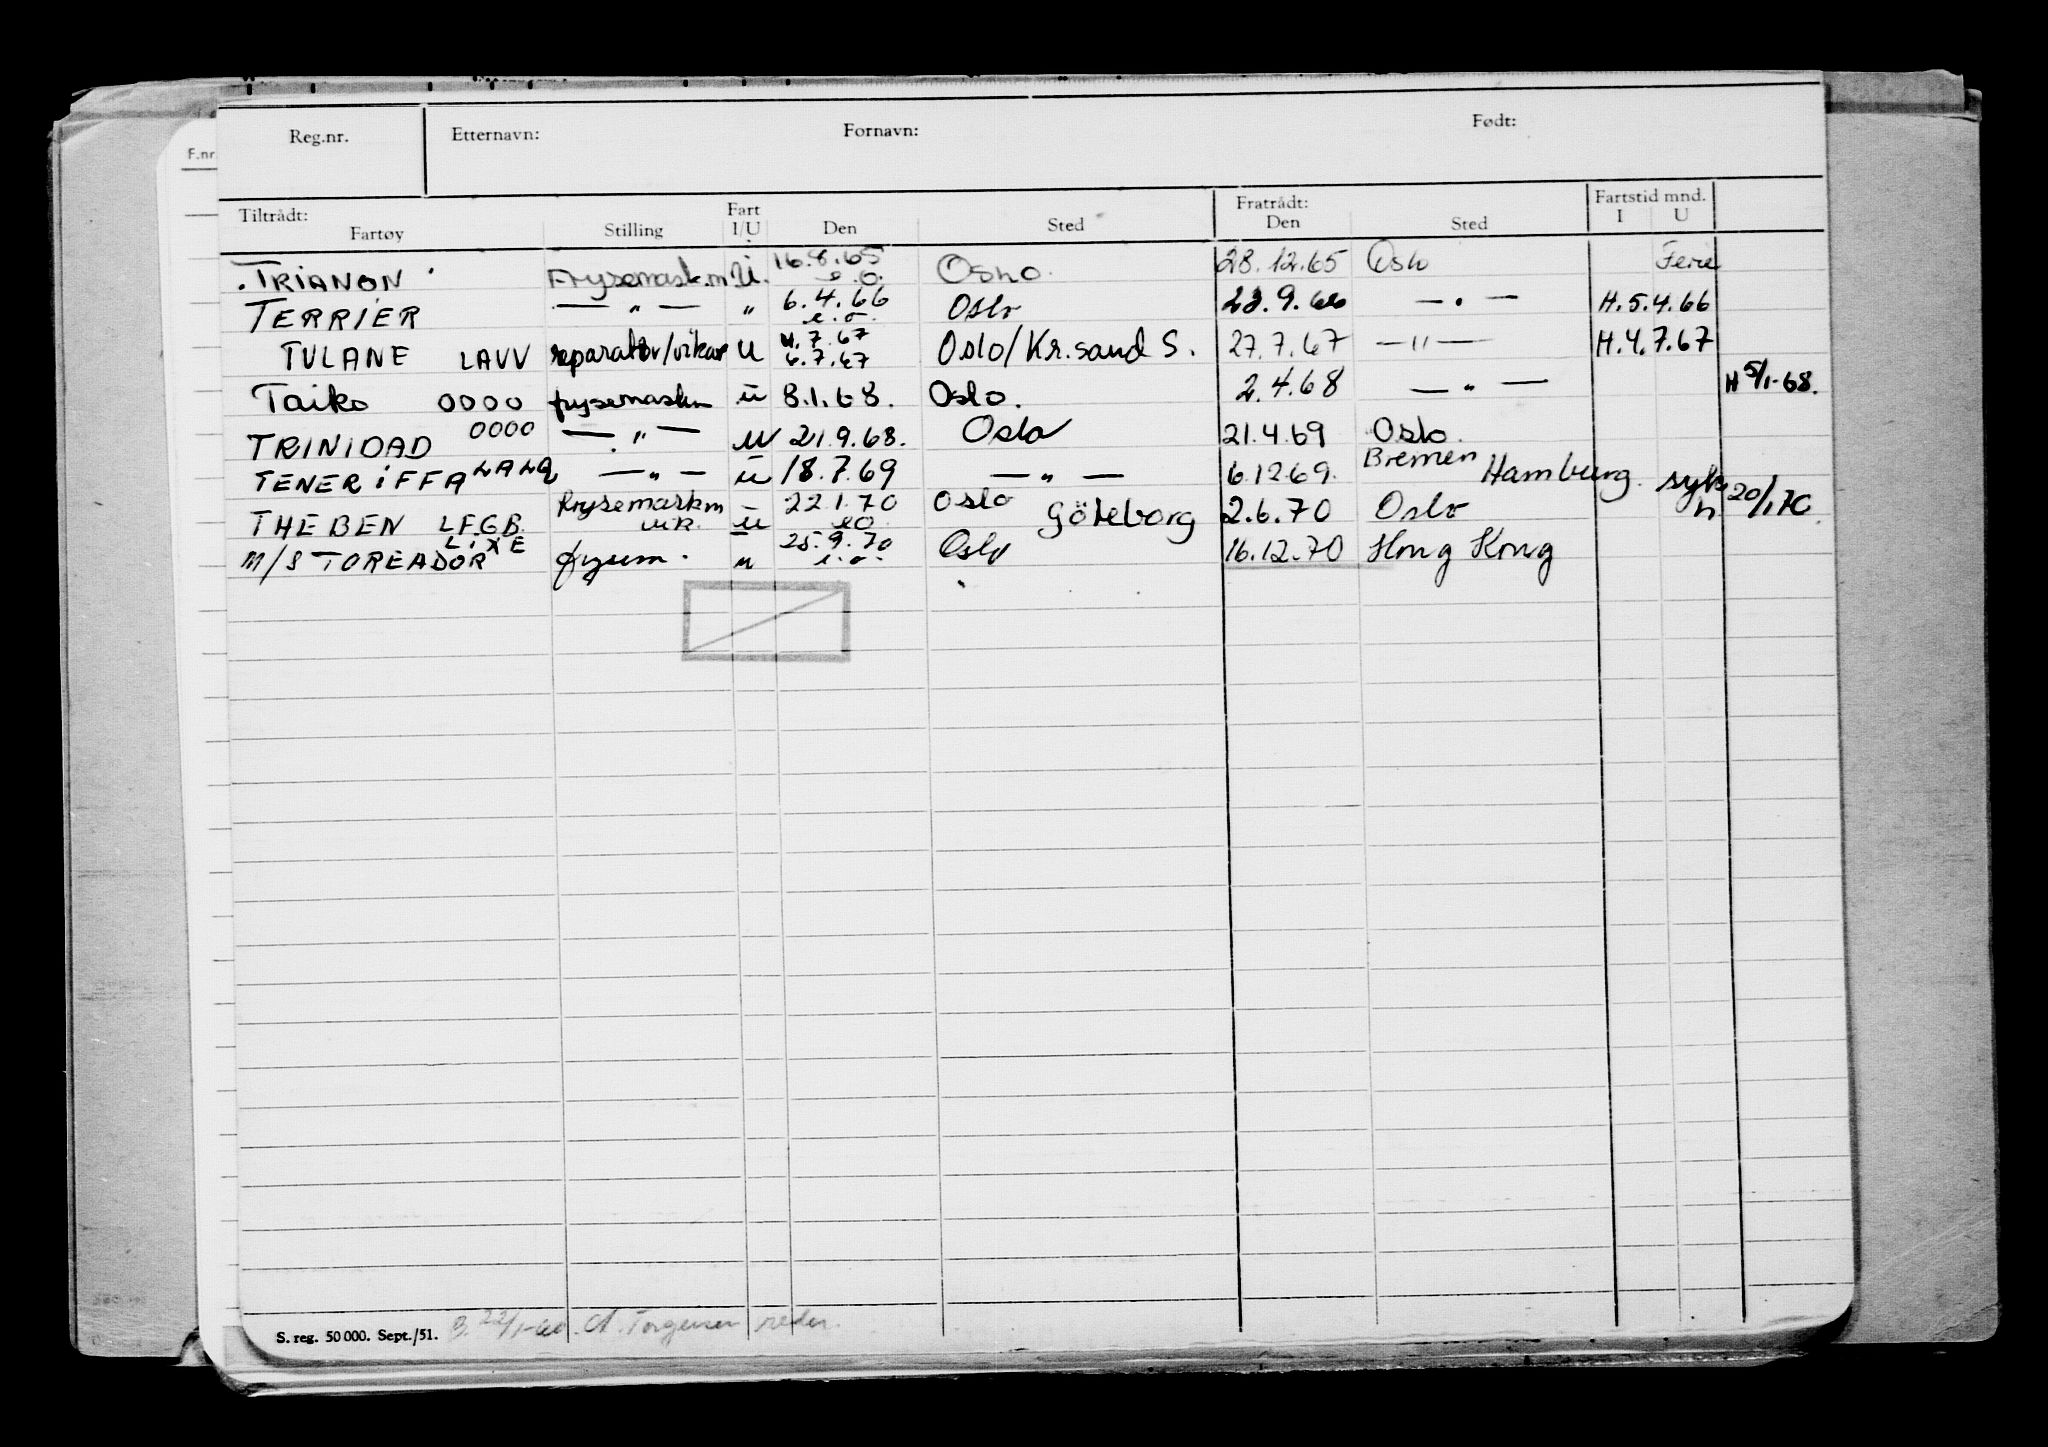 Reg.nr. Etternavn: Fornavn: Født:
F.nr.
Tiltrådt: Fart Fratrådt: Fartstid mnd.
Fartøy Stilling I/U Den Sted Den Sted I U
TRIANON Frysemask.m. U. 16.8.65 e.o. Oslo. 28.12.65 Oslo Ferie
TERRIER — " — " 6.4.66 e.o. Oslo 9.66 — " — H.5.4.66
TULANE LAVV reparatör/vikar U 4.7.67 6.7.67 Oslo/Kr.sand S. 27.7.67 — " — H.4.7.67
Taiko 0000 frysemaskm u 8.1.68. Oslo. 2.4.68 — " — H 5/1-68.
TRINIDAD 0000 — " — u 21.9.68. Oslo 21.4.69 Oslo.
TENERIFFA LALQ — " — u 18.7.69 — " — 6.12.69. Bremen Hamburg. syk
THEBEN LFGB. frysemaskm vik. u 22.1.70 e.o. Oslo Göteborg 2.6.70 Oslo h 20/1.70
M/S TOREADOR LIXE frysem. " 25.9.70 e.o. Oslo 16.12.70 Hong Kong
S. reg. 50 000. Sept./51. 22/1-60. A. Torgersen